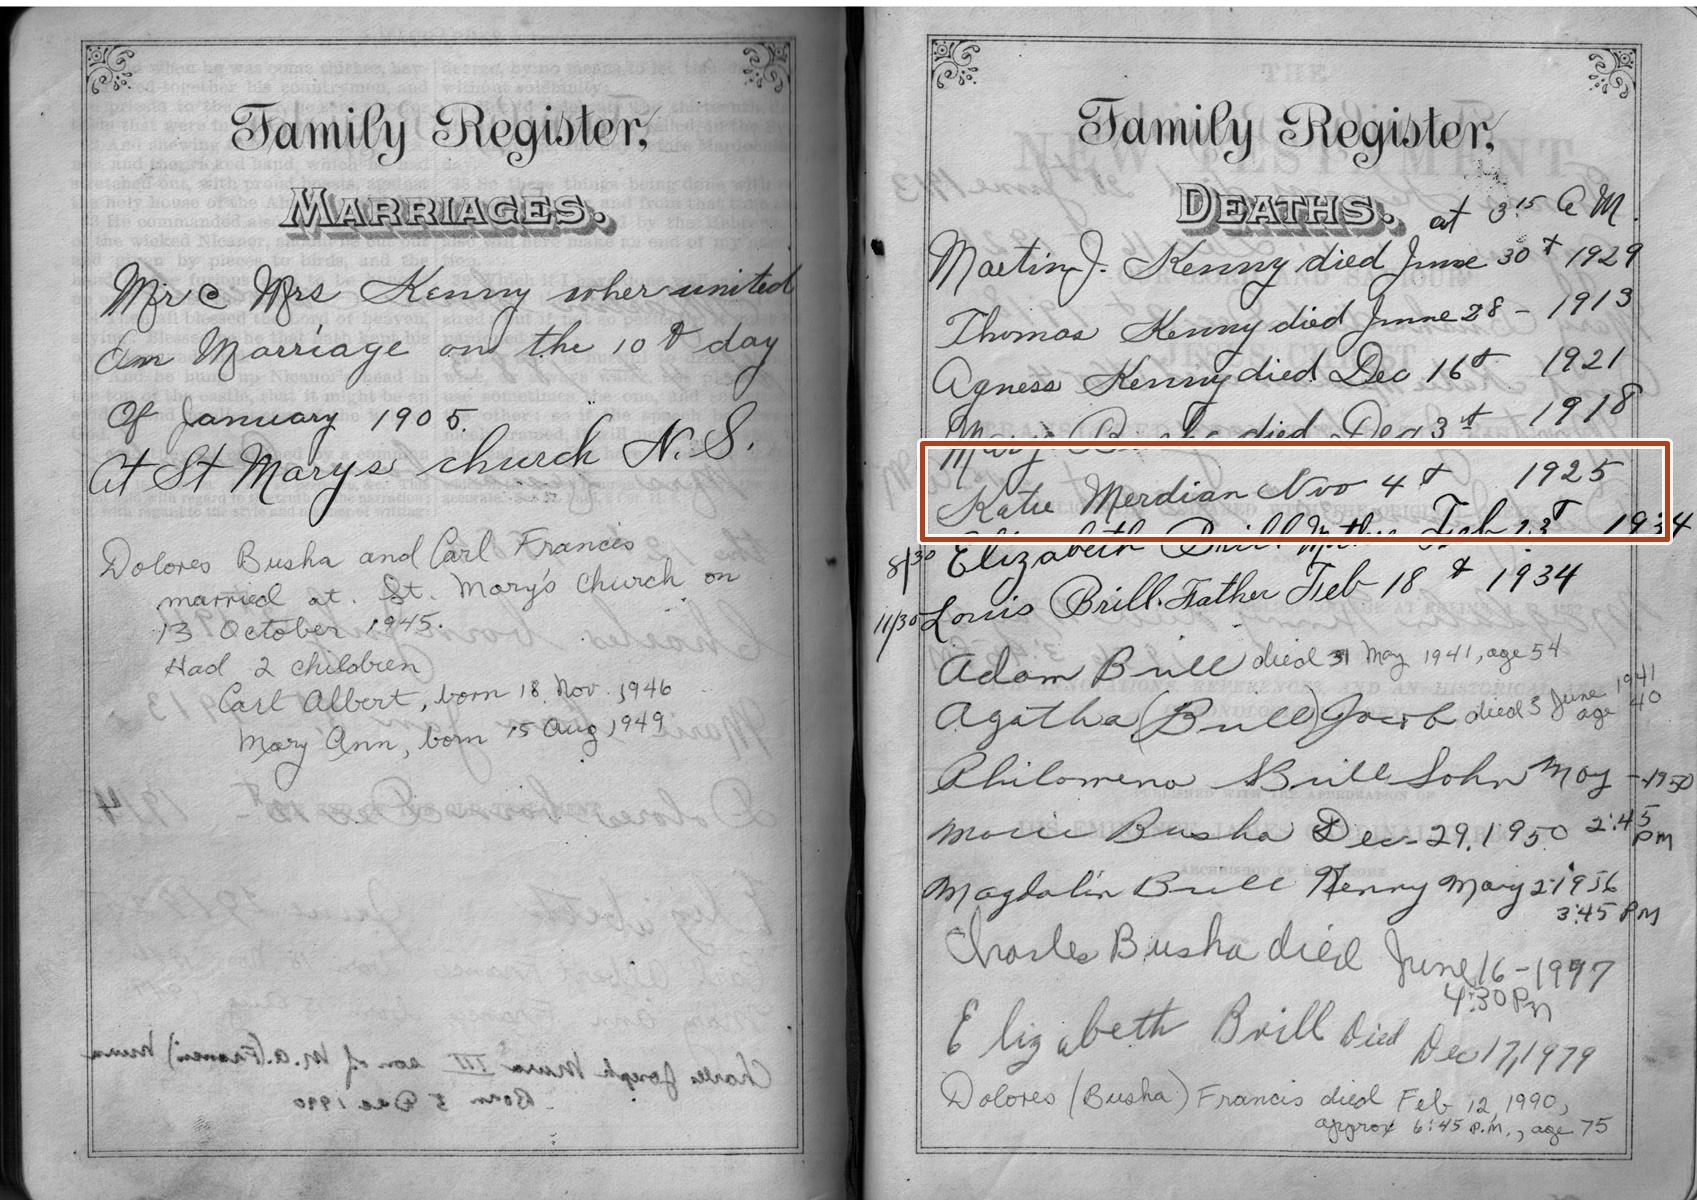 Family Register,
MARRIAGES.
Mr & Mrs Kenny wher united
am Marriage on the 10th day
Of January 1905.
At St Marys church N. S.
Dolores Busha and Carl Francis
married at. St. Mary's Church on
13 October 1945.
Had 2 children
Carl Albert, born 18 Nov. 1946
Mary Ann, born 15 Aug 1949
Charles Joseph Mura III son of M. A. (Francis) Mura
Born 5 Dec 1990
Family Register,
DEATHS.
at 3 15 A M.
Martin J. Kenny died June 30th 1929
Thomas Kenny died June 28 - 1913
Agness Kenny died Dec 16th 1921
Mary died Dec 3th 1918
Katie Merdian Nov 4th 1925
8/30 Elizabeth Brill Mother Feb 13th 1934
11/30 Louis Brill Father Feb 18th 1934
Adam Brill died 31 May 1941, age 54
Agatha (Brill) Jacob died 3 June 1941
age 40
Philomena Brill Sohn May - 1950
Marie Busha Dec - 29, 1950 2:45
PM
Magdalin Brill Kenny May 2 1956
3:45 PM
Charles Busha died June 16 - 1977
4:30 Pm
Elizabeth Brill Died Dec 17, 1979
Dolores (Busha) Francis died Feb 12, 1990,
approx 6:45 P.M., age 75